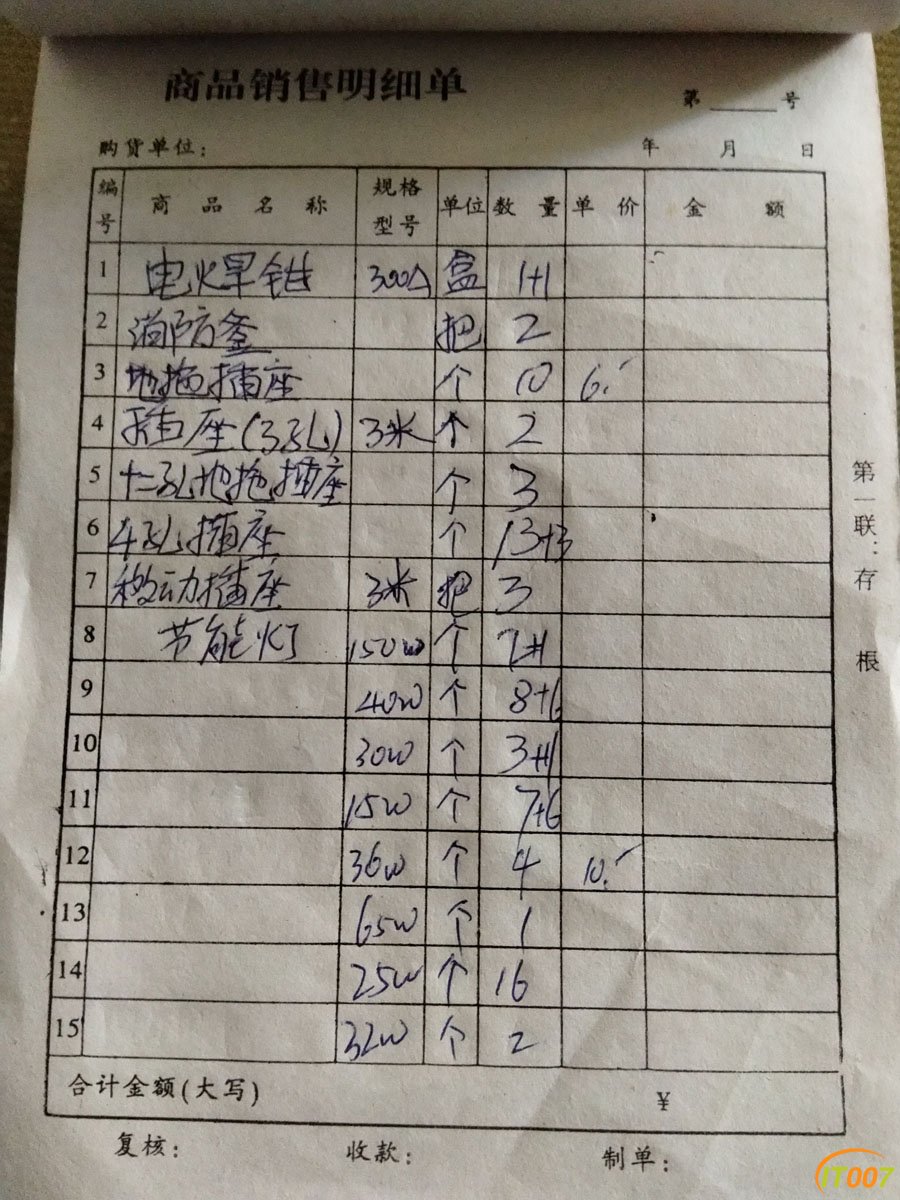 商品销售明细单
第 号
购货单位: 年 月 日
编号 商品名称 规格型号 单位 数量 单价 金额
1 电火旱钳 300A 盒 1+1
2 消防釜 把 2
3 地拖插座 个 10 6.-
4 插座(3孔) 3米 个 2
5 十二孔地拖插座 个 3
6 4孔插座 个 13+3
7 移动插座 3米 把 3
8 节能灯 150w 个
9 40w 个 8+6
10 30w 个 3+1
11 15w 个 7+6
12 36w 个 4 10.-
13 65w 个 1
14 25w 个 16
15 32w 个 2
合计金额(大写) ¥
复核: 收款: 制单:
第一联:存根
IT007